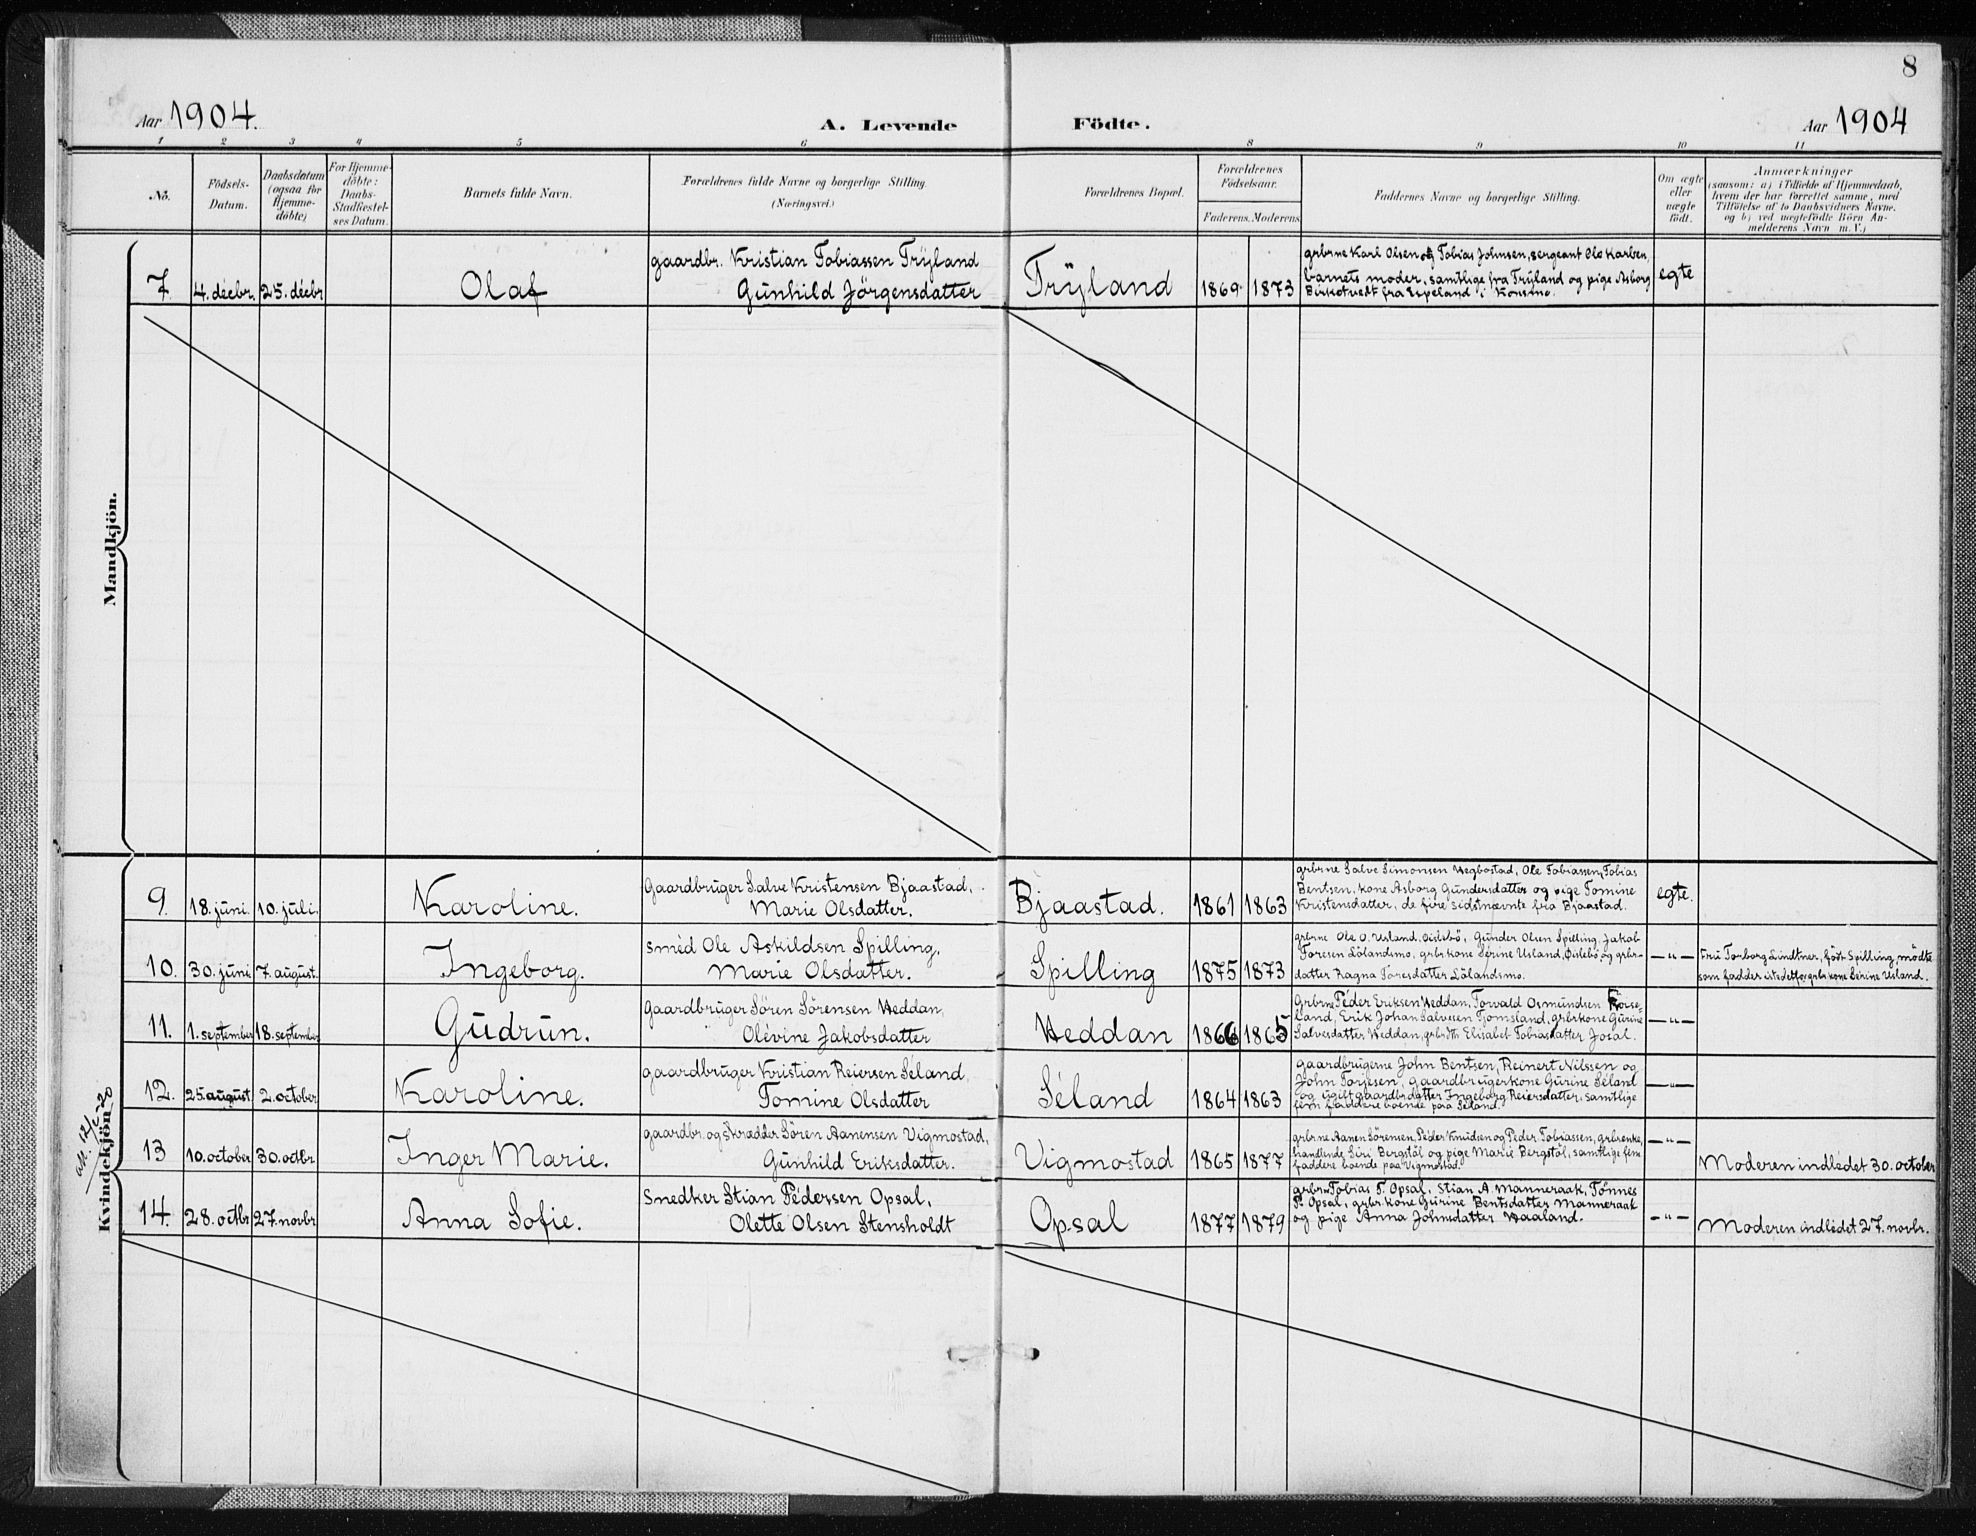 8
Aar 1904.
A. Levende
Födte.
Aar 1904
1 2 3 4 5 6 8 9 10 11
No.
Födsels-
Datum.
Daabsdatum
(ogsaa for
Hjemme-
döbte)
For Hjemme-
döbte:
Daabs-
Stadfæstel-
ses Datum.
Barnets fulde Navn.
Forældrenes fulde Navne og borgerlige Stilling.
(Næringsvei.)
Forældrenes Bopæl.
Forældrenes
Födselsaar.
Faderens. Moderens
Faddernes Navne og borgerlige Stilling.
Om ægte
eller
uægte
födt.
Anmærkninger
(saasom: a) i Tilfælde af Hjemmedaab,
hvem der har forrettet samme, med
Tilföielse af to Daabsvidners Navne.
og b) ved uægtefödte Börn An-
melderens Navn m. V.)
Mandkjön.
7
4. décbr.
25. décbr
Olaf
gaardbr. Kristian Tobiassen Trÿland
Gunhild Jörgensdatter
Trÿland
1869
1873
grbrne Karl Olsen og Tobias Johnsen, sergeant Olo Karben,
barnets moder, samtlige fra Trÿland og pige Asborg
Birketvedt fra Espeland i Konsmo.
egte
Kvindekjön
9.
18. juni.
10. juli.
Karoline.
Gaardbruger Salve Kristensen Bjaastad,
Marie Olsdatter.
Bjaastad.
1861
1863
grbrne Salve Simonsen Hegbostad, Ole Tobiassen, Tobias
Bentsen, kone Asborg Gundersdatter og pige Tomine
Kristensdatter, de fire sidstnævnte fra Bjaastad.
egte.
10.
30. juni
7. august.
Ingeborg.
smed Ole Askildsen Spilling,
Marie Olsdatter.
Spilling
1875
1873
grbrne Ole O. Usland, Öislebö, Gunder Olsen Spilling, Jakob
Toresen Lölandsmo, grbrkone Serine Usland, Öislebö og grbr-
datter Ragna Toresdatter Lölandsmo.
-"-
Fru Torborg Lindtner, födt Spilling, mödte
som fadder istedetfor grbrkone Serine Usland.
11.
1. september
18. september
Gudrun.
Gaardbruger Sören Sörensen Heddan,
Olevine Jakobsdatter
Heddan
1866
1865
Grbrne Peder Eriksen Heddan, Torvald Osmundsen
land, Erik Johan Salvesen Tjomsland, grbrkone Gurine
Salvesdatter Heddan, Elisabet Tobiasdatter Josal.
-"-
12.
25. august
2. october
Karoline.
gaardbruger Kristian Reiersen Séland,
Tomine Olsdatter
Séland
1864
1863
gaardbrugerne John Bentsen, Reinert Nilssen og
John Torjesen, gaardbrugerkone Gurine Séland
og ugift gaardbrdatter Ingeborg Reiersdatter, samtlige
fem faddere boende paa Séland.
-"-
13
10. october
30. octbr
Inger Marie.
gaardbr. og skrædder Sören Aanensen Vigmostad,
Gunhild Eriksdatter.
Vigmostad
1865
1877
grbrne Aanen Sörensen, Peder Knudsen og Peder Tobiassen, grbrenke,
handlende Siri Bergstöl og pige Marie Bergstöl, samtlige fem
faddere boende paa Vigmostad.
-"-
Moderen indlédet 30. october
14.
28. octbr
27. novbr.
Anna Sofie.
Snedker Stian Pédersen Opsal,
Olette Olsen Stensholdt
Opsal
1877
1879
grbrne Tobias T. Opsal, Stian A. Manneraak, Tönnes
P. Opsal, grbr.kone Gurine Bentsdatter Manneraak
og pige Anna Johnsdatter Haaland.
-"-
Moderen indlédet 27. novbr.